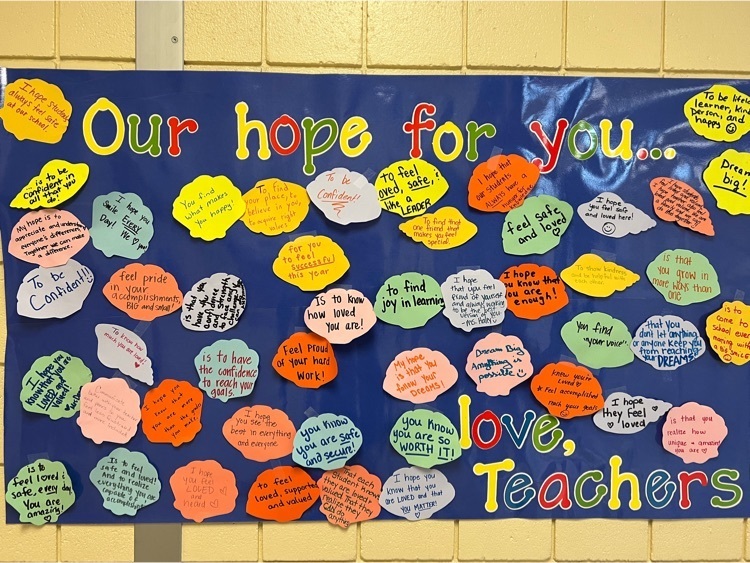 Our hope for you...
I hope students
always feel safe
at our school.
is to be
confident in
all that you
do!
I hope you
Smile EVERY
Day!
We ♡ you!
You find
what makes
you happy!
To find
your place,
to believe in you,
to enjoy
To be
Confident!!
To feel
loved, safe, &
like a
LEADER
To find that
one friend that
makes you feel
special.
I hope that
our students
always have a
feel safe
and loved
I hope
you feel safe
and loved here!
To be life
learner, kind
Person, and
happy
Dream
big!
My hope is to
appreciate and understand
everyone's differences.
Together we can make
a difference.
for you to
feel
successful
this year
To be
Confident!!
feel pride in
your
accomplishments,
BIG and small!
is that you
have
confidence
and strength
to
challenge
is to know
how loved
you are!
to find
joy in learning
I hope
that you feel
Proud of yourself
and always
to be the best
version of you.
I hope
you know that
you are
enough!
To show kindness
is that
you grow in
more ways than
one!
To know how
much you are loved!
is to have
the confidence
to reach your
goals.
Feel Proud
of your Hard
Work!
My hope is that
you follow your
DREAMS!
Dream Big
Anything is
possible
you find
"your voice"!
that you
dont let anything
or anyone keep you
from reaching
your
DREAMS!
is to
come to
school every
morning with
a big smile
I hope you
Know that you're
LOVED
I hope you
know that
you are more
than the
you make.
I hope
you see the
best in everything
and everyone
you know
you are safe
and secure!
you know
you are so
WORTH IT!
know you're
Loved ♡
& Feel accomplished
reach your goals
I hope
they feel
♡ loved ♡
is that you
realize how
unique & amazing
you are ♡
is to
feel loved &
safe, every day
You are
amazing!
Is to feel
safe and loved!
And to realize
everything you are
capable of
accomplishing!
I hope
you feel
LOVED
and
to feel
loved, supported
and valued
that each
student knows
they are loved &
valued. That they
realize they
CAN do
anything
I hope you
know that you
are LOVED and that
YOU MATTER!
♡
love,
Teachers